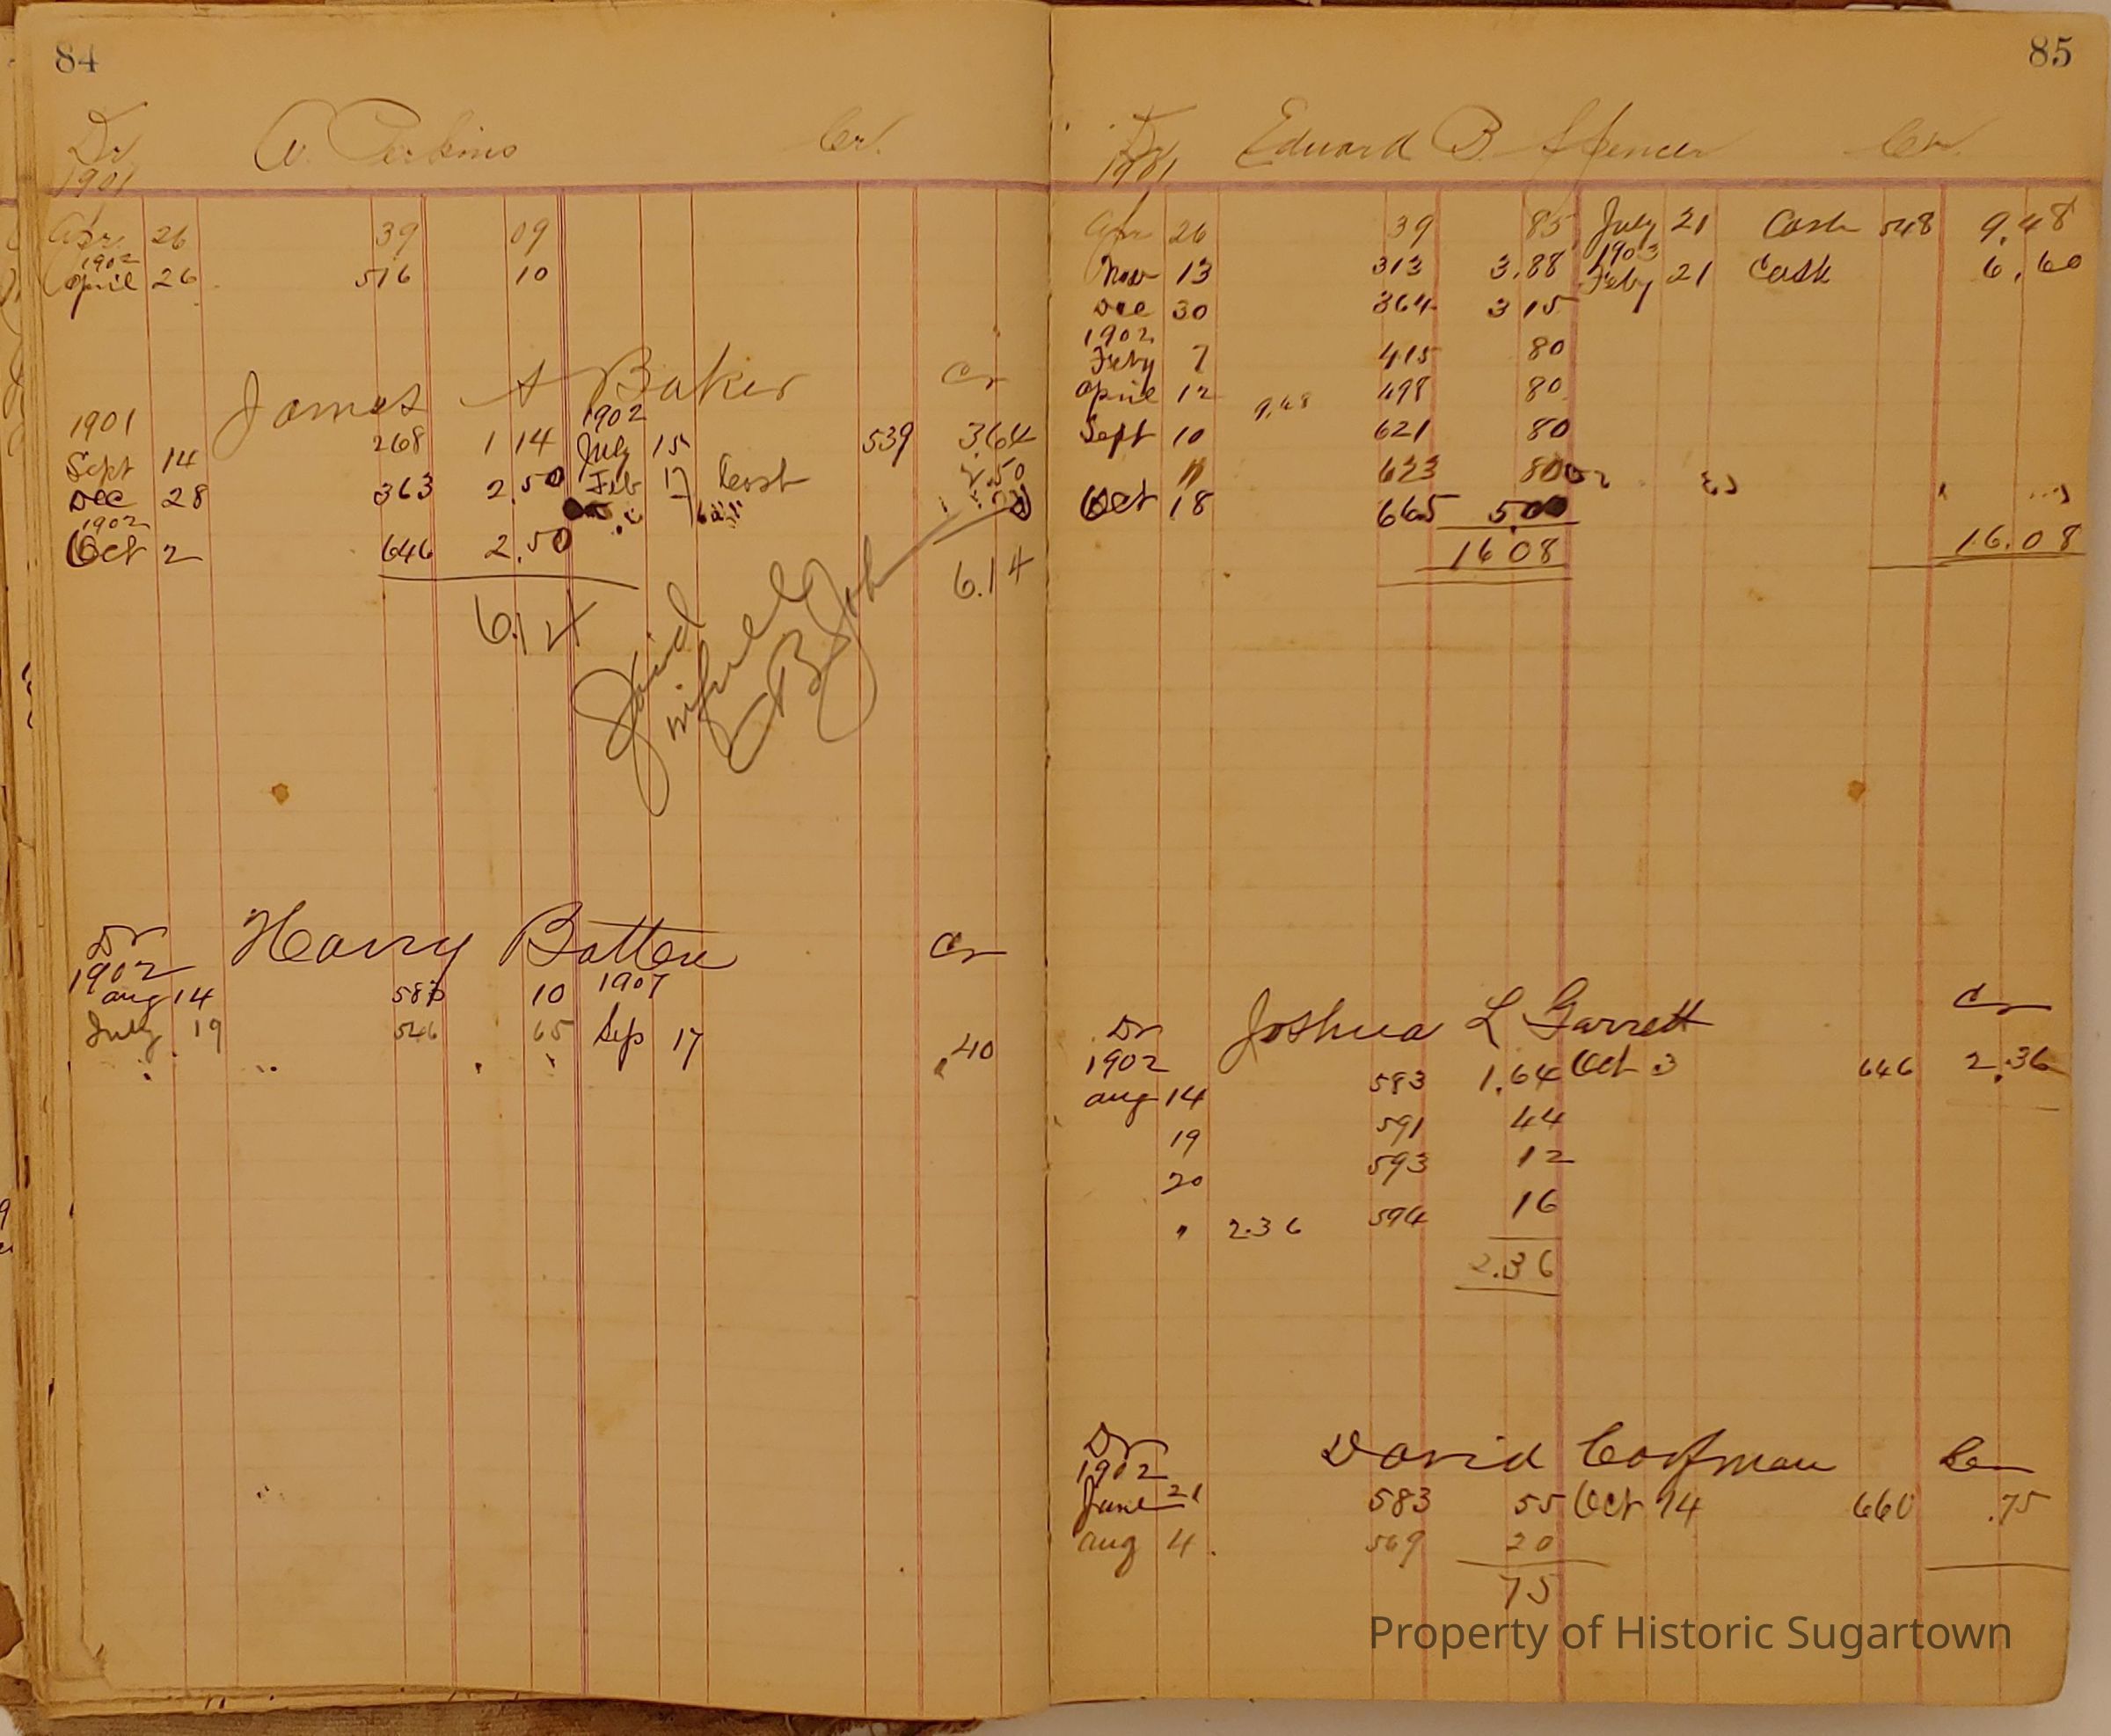 84
Dr A. Perkins Cr.
1901
Apr. 26 39 09
1902
April 26 516 10
James A Baker Cr
1901 1902
Sept 14 268 1 14 July 15 539 3.64
Dec 28 363 2.50 Feb 17 Cash 2.50
1902
Oct 2 646 2.50
6.14 6.14
Paid
in full
Dr Harry Batten Cr
1902 1907
aug 14 583 10
July 19 546 65 Sep 17 .40
85
Dr Edward B. Spencer Cr.
1901
Apr 26 39 85 July 21 Cash 548 9.48
1903
Nov 13 313 3.88 Feby 21 Cash 6.60
Dec 30 364 3 15
1902
Feby 7 415 80
April 12 9.48 498 80
Sept 10 621 80
" 623 80
Oct 18 665 5.00
16 08 16.08
Dr Joshua L Garrett Cr
1902
aug 14 583 1.64 Oct 3 646 2.36
19 591 44
20 593 12
" 2.36 594 16
2.36
Dr David Coffman Cr
1902
June 21 583 55 Oct 14 660 .75
aug 4 569 20
75
Property of Historic Sugartown